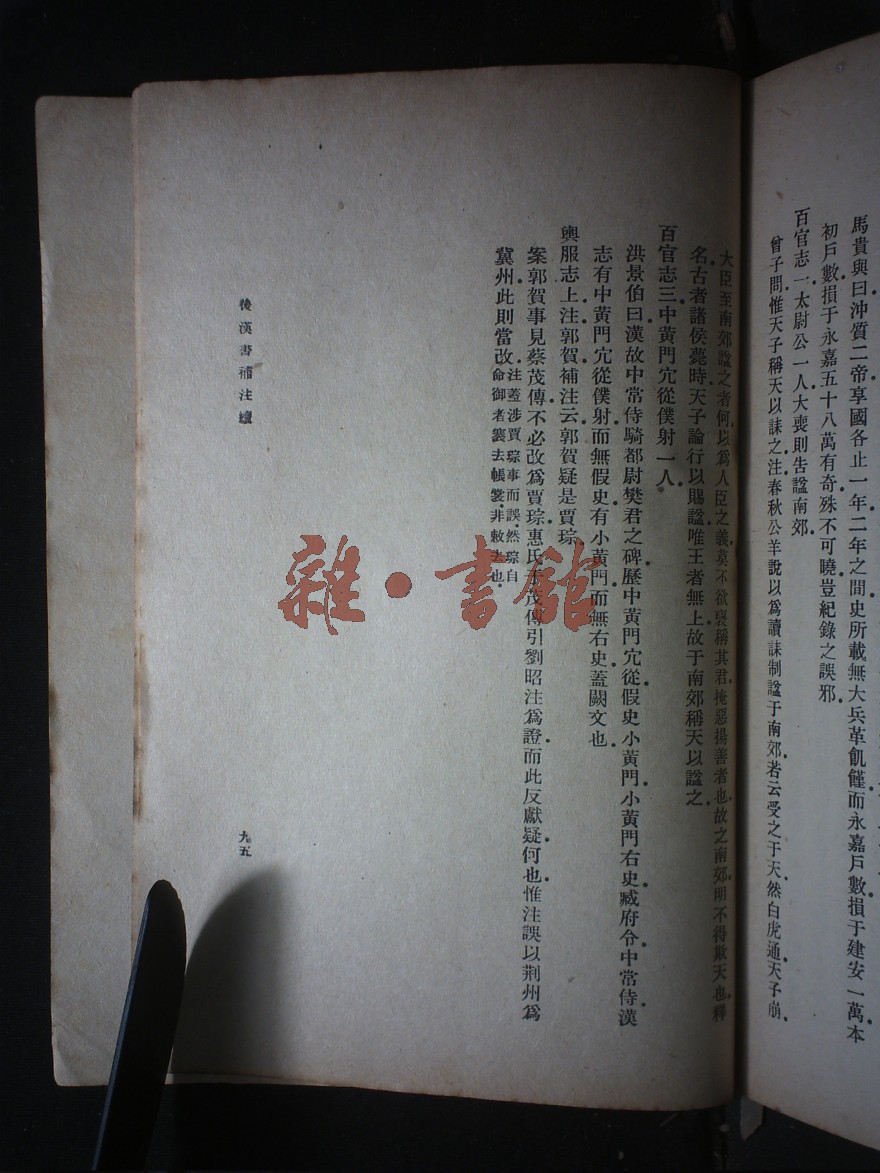 馬貴與曰沖質二帝享國各止一年二年之間史所載無大兵革飢饉而永嘉戶數損于建安一萬本
初戶數損于永嘉五十八萬有奇殊不可曉豈紀錄之誤邪
百官志一太尉公一人大喪則告諡南郊
曾子問惟天子稱天以誄之注春秋公羊說以為讀誄制諡于南郊若云受之于天然白虎通天子崩
大臣至南郊諡之者何以為人臣之義莫不欲襃稱其君掩惡揚善者也故之南郊明不得欺天也釋
名古者諸侯薨時天子論行以賜諡唯王者無上故于南郊稱天以諡之
百官志三中黃門宂從僕射一人
洪景伯曰漢故中常侍騎都尉樊君之碑歷中黃門宂從假史小黃門小黃門右史臧府令中常侍漢
志有中黃門宂從僕射而無假史有小黃門而無右史蓋闕文也
輿服志上注郭賀補注云郭賀疑是賈琮
案郭賀事見蔡茂傳不必改為賈琮惠氏于茂傳引劉昭注為證而此反獻疑何也惟注誤以荆州為
冀州此則當改注蓋涉賈琮事而誤然琮自命御者褰去帳襜非敕去也
後漢書補注續
九五
雜·書館